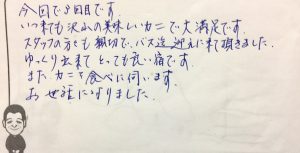 今回で3回目です。
いつ来ても沢山の美味しいカニで大満足です。
スタッフの方々も親切で、バス迄迎えに来て頂きました。
ゆっくり出来てとっても良い宿です。
また、カニを食べに伺います。
お世話になりました。